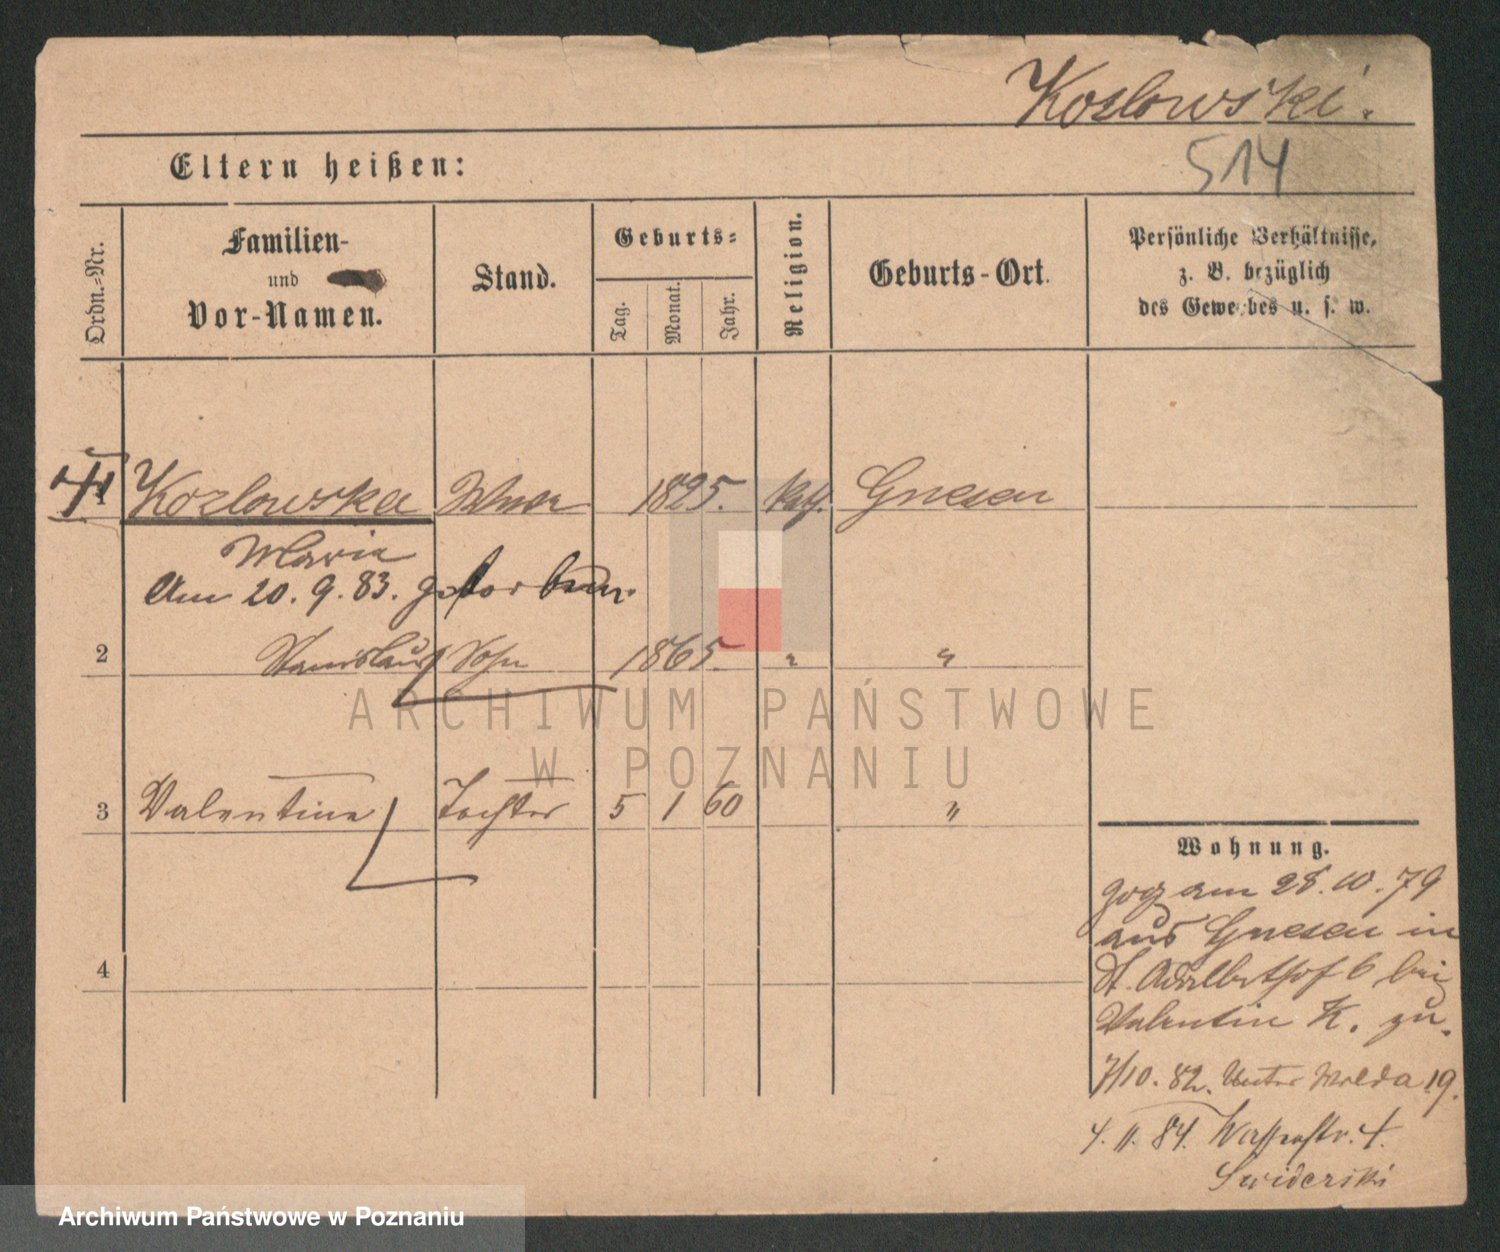 Kozlowski.
514
Eltern heißen:
Ordn.-Nr.
Familien-
und
Vor-Namen.
Stand.
Geburts-
Tag.
Monat.
Jahr.
Religion.
Geburts-Ort.
Persönliche Verhältnisse,
z. B. bezüglich
des Gewerbes u. s. w.
1 Kozlowska 1825. kath. Gnesen
Maria
Am 20. 9. 83. gestorben.
2 Stanislaus Sohn 1865. " "
3 Valentine Tochter 5 1 60 "
4
Wohnung.
am 28. 10. 79
aus Gnesen in
St. Adalberthof 6 bei
Valentin K. zu.
7/10. 82. Unter Wilda 19.
4. 11. 84. Wasserstr. 4.
Swiderski
ARCHIWUM PAŃSTWOWE
W POZNANIU
Archiwum Państwowe w Poznaniu